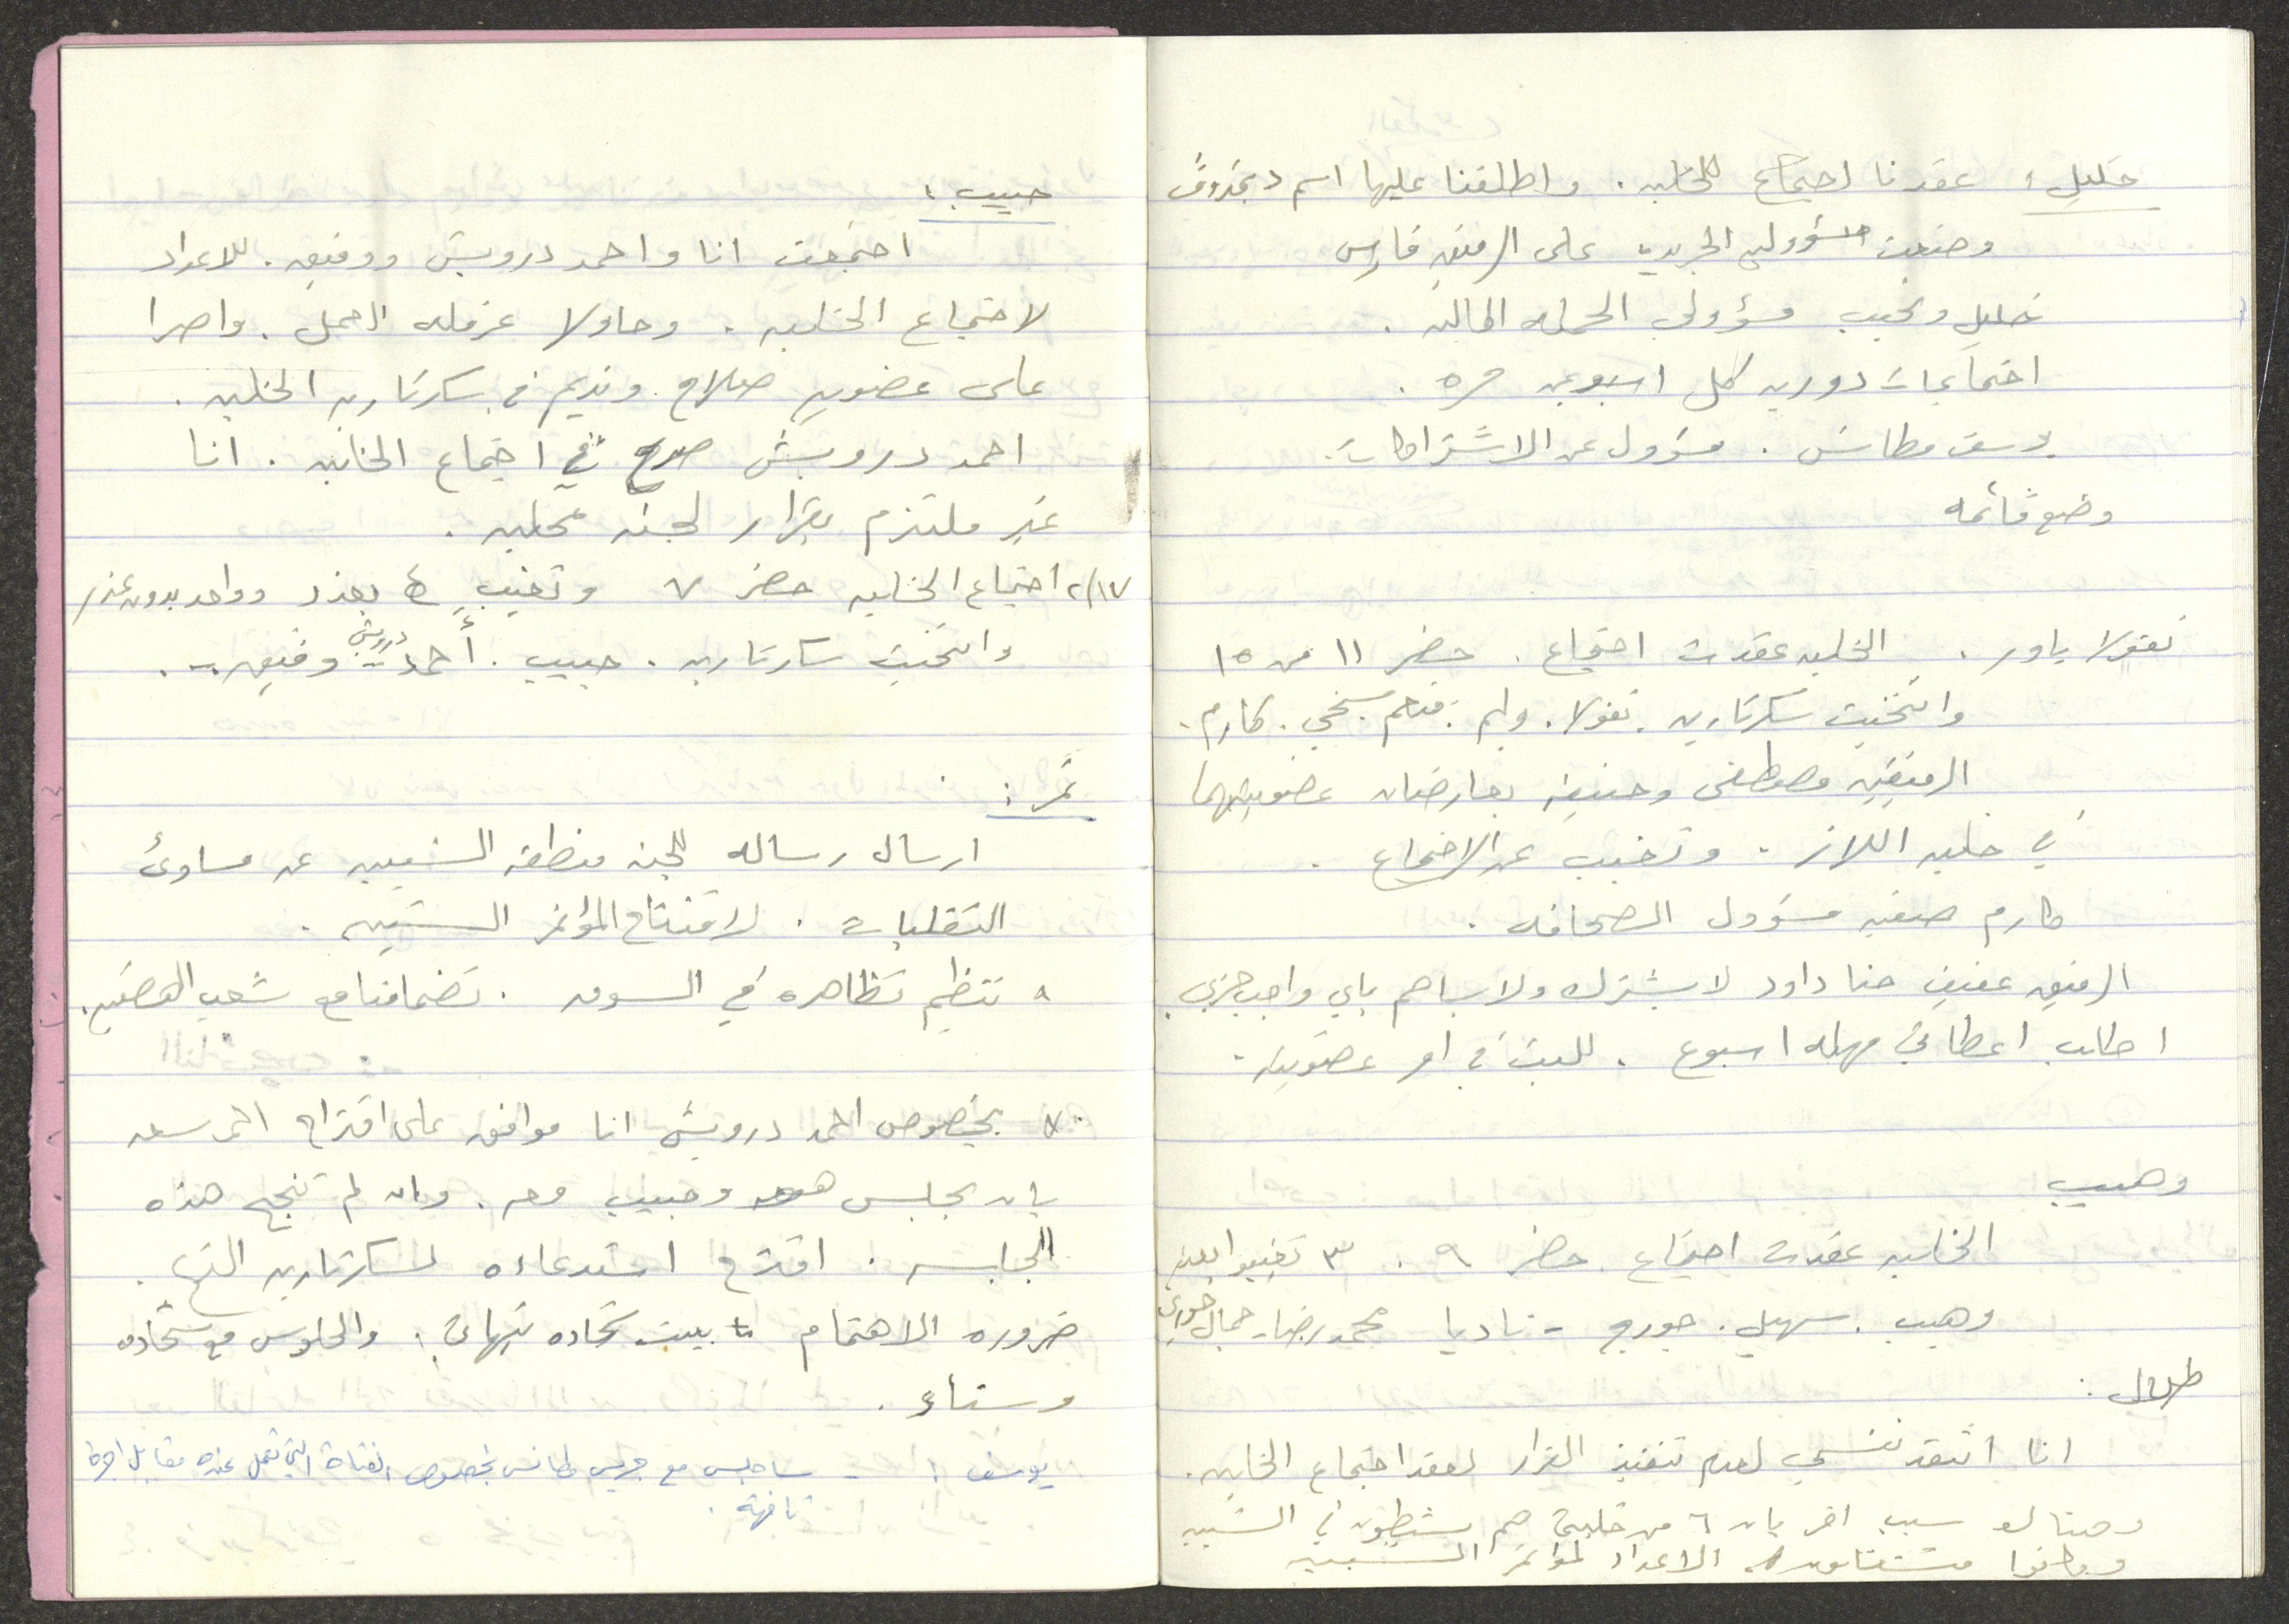 خليل: عقدنا اجتماع للخليه. واطلقنا عليها اسم
وضعت مسؤولية الجريدة على الرفيق فارس
خليل ونجيب مسؤولي الحمله الماليه.
اجتماعات دوريه كل اسبوعين مره.
يوسف مطانس. مسؤول عن الاشتراكات.
وضع قائمه
نقولا ياور. الخليه عقدت اجتماع. حضر ١١ من ١٥
وانتخبت سكرتاريه. نقولا. وليم. كارم.
الرفيقين مصطفى وحنيفه يعارضان عضويتهما
في خليه اللاز. وتغيب عن الاجتماع.
كارم صفيه مسؤول الصحافه.
الرفيق عفيف حنا داود لا يشترك ولا يساهم باي واجب حزبي.
اطلب اعطائي مهله اسبوع. للبت في امر عضويته.
وهيب
الخليه عقدت اجتماع حضر ٩. ٣ تغيبوا بعذر
وهيب. سهيل. جورج - ناديا محمد رضا - جمال خوري
طلال:
انا انتقد نفسي لعدم تنفيذ القرار لعقد اجتماع الخليه.
وهنالك سبب اخر بان ٦ من خليتي هم ينشطون في الشبيبه
وكانوا منشغلون الاعداد لمؤتمر الشبيبه
حبيب:
اجتمعت انا واحمد درويش ووفيق. للاعداد
لاجتماع الخليه. وحاولا عرقله العمل. واصرا
على عضوية صلاح ونديم في سكرتارية الخليه.
احمد درويش صرح في اجتماع الخليه. انا
غير ملتزم بقرار لجنه محليه.
٢/١٧ اجتماع الخليه حضر ٧ وتغيب ٤ بعذر وواحد بدون عذر
وانتخبت سكرتاريه. حبيب. أحمد درويش وفيق.
نمر:
ارسال رساله للجنه منطقه الشبيبه عن مساوئ
التنقلات. لافتتاح المؤتمر الشبيبه.
٥ تنظيم تظاهره في السوق. تضامنا مع شعب
٧. بخصوص احمد درويش انا موافق على اقتراح احمد سعد
بان يجلس هو وحبيب معه. وان لم تنجح هذه
الجلسه. اقترح استدعاءه لسكرتارية الفرع.
ضروره الاهتمام ببيت شحاده والجلوس مع شحاده
وسناء.
يوسف: - ساجلس مع جريس مطانس بخصوص الفتاة التي تعمل عنده مقابل اجرة
تافهة.